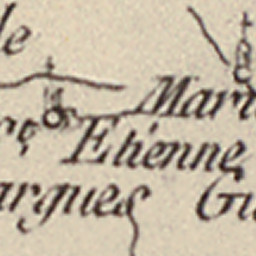 le
Mar
Etienne
argues Gu